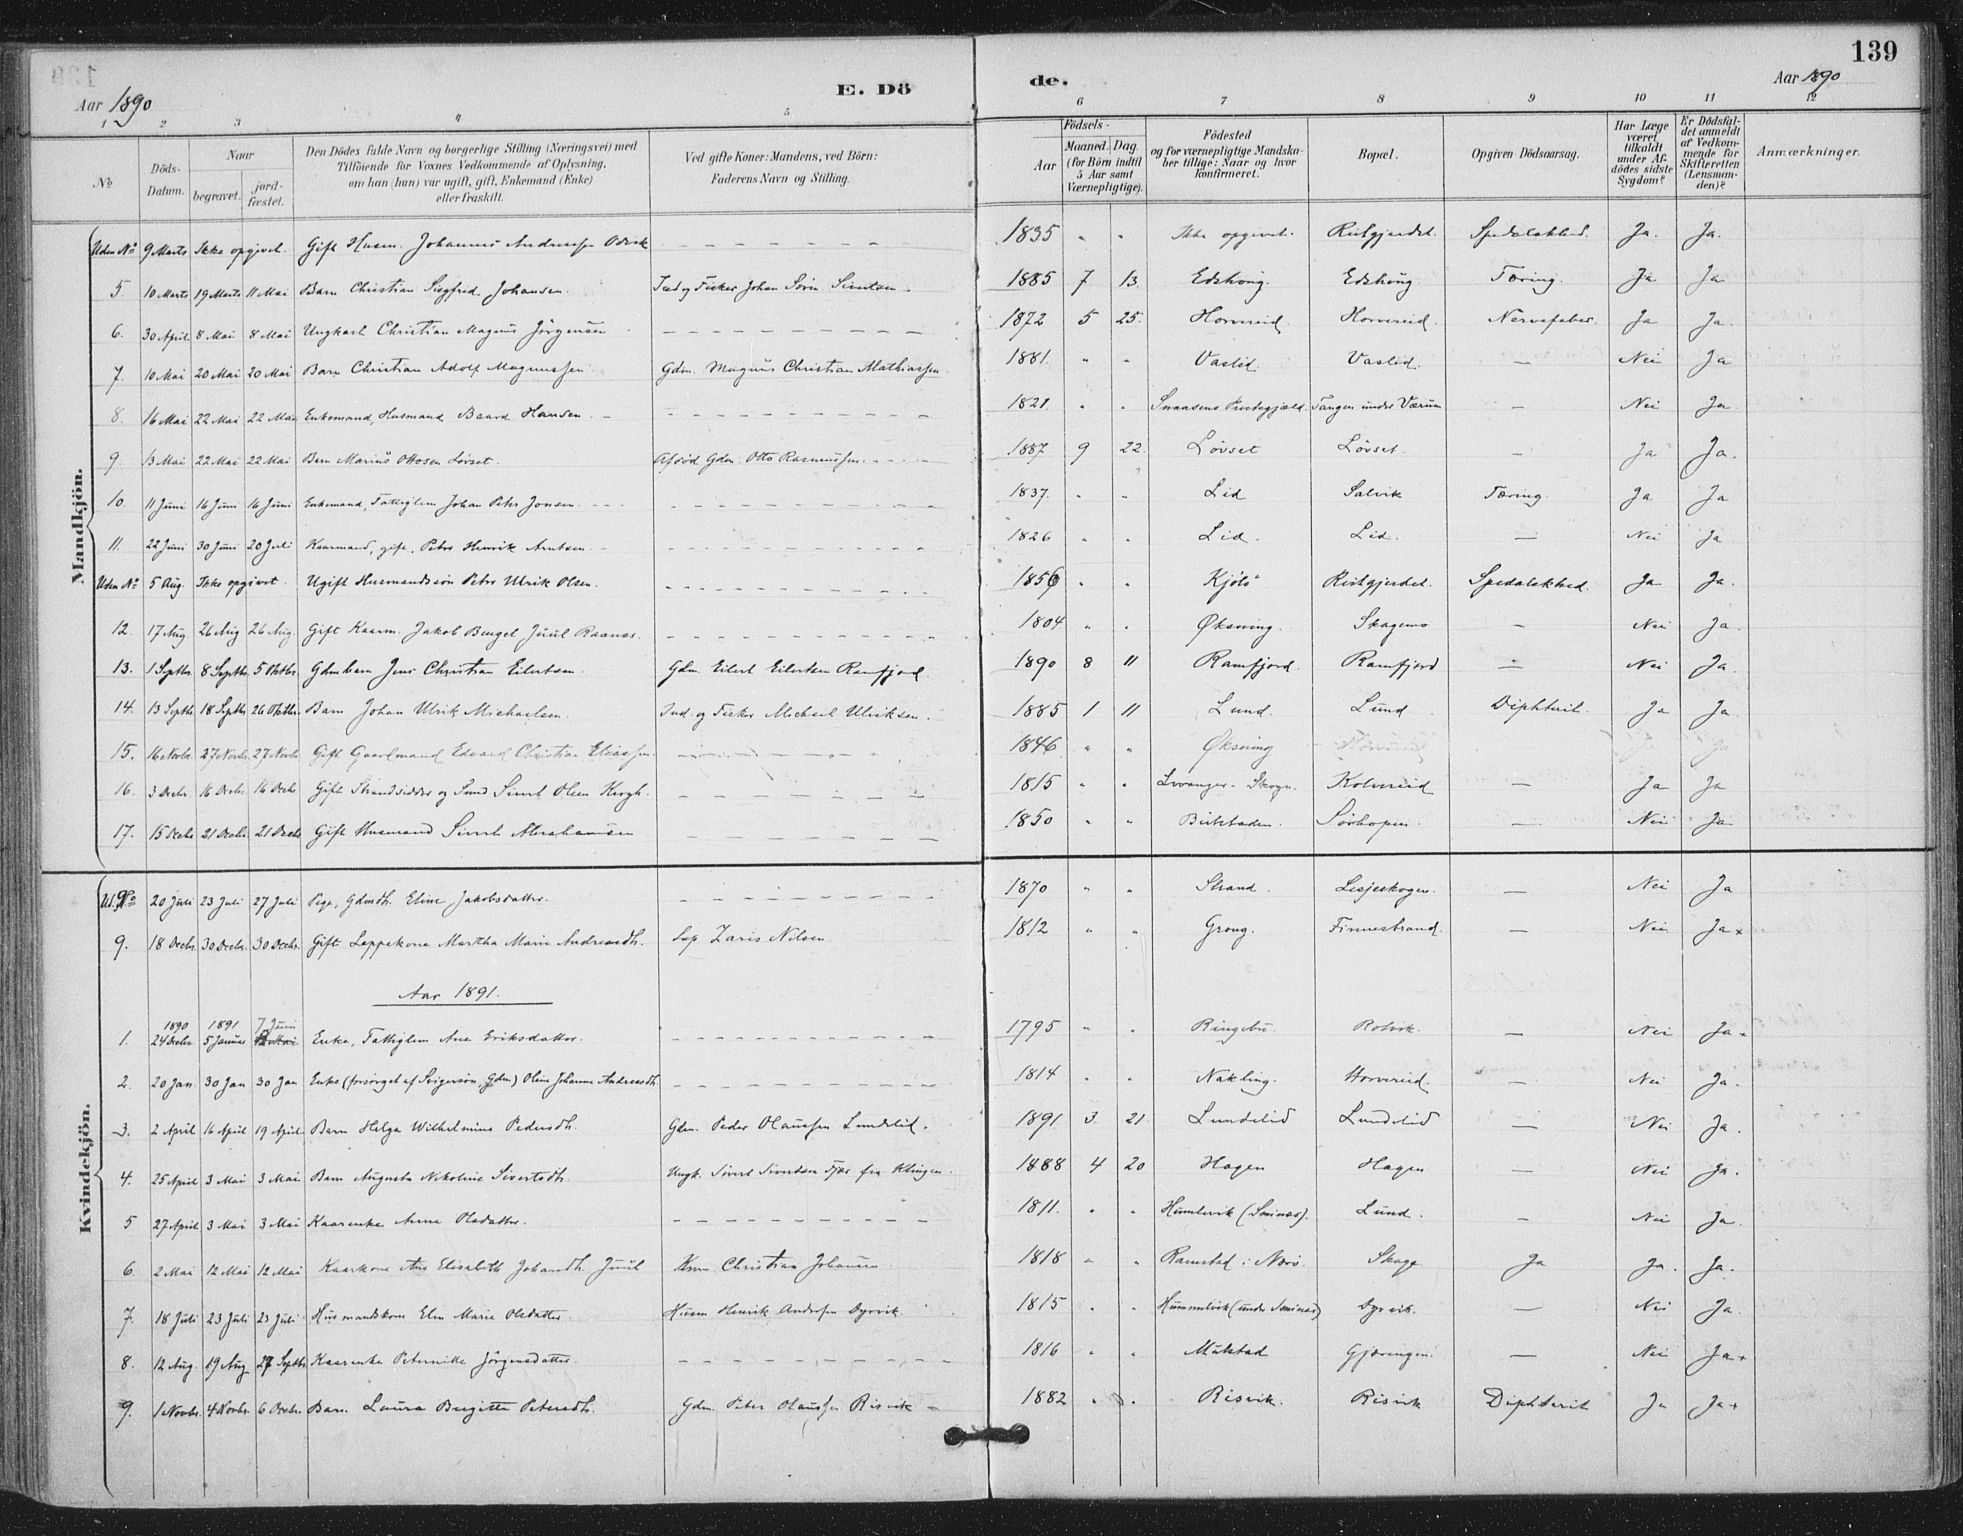 139
Aar 1890 E. Dö de. Aar 1890
1 2 3 4 5 6 7 8 9 10 11 12
No Döds-Datum. Naar begravet. jord-fæstet. Den Dödes fulde Navn og borgerlige Stilling (Næringsvei) med Tilföiende for Voxnes Vedkommende af Oplysning, om han (hun) var ugift, gift, Enkemand (Enke) eller fraskilt. Ved gifte Koner: Mandens, ved Börn: Faderens Navn og Stilling. Födsels- Aar Maaned. Dag (for Börn indtil 5 Aar samt Værnepligtige). Födested og for værnepligtige Mandskaber tillige: Naar og hvor konfirmeret. Bopæl. Opgiven Dödsaarsag. Har Læge været tilkaldt under Afdödes sidste Sygdom? Er Dödsfaldet anmeldt af Vedkommende for Skifteretten (Lensmanden)? Anmærkninger.
Mandkjön.
Uden No 9 Marts Ikke opgivet. Gift Husm. Johannes Andreassen - - - 1835 " " Ikke opgivet. Reitgjerdet. Spedalskhed. Ja. Ja.
5. 10 Marts 19 Marts 11 Mai Barn Christian Sigfred Johansen. Ind og Fisker Johan Sörn Sivertsen. 1885 7 13 Edshoug. Edshoug Tæring. Ja Ja
6. 30 April 8 Mai 8 Mai Ungkarl Christian Magnus Jörgensen - - - 1872 5 25. Horvereid. Horvereid. Nervefeber. Ja Ja.
7. 10 Mai 20 Mai 20 Mai Barn Christian Adolf Magnussen Gdm. Magnus Christian Mathiassen 1881. " " Vaslid. Vaslid. — Nei Ja
8. 16 Mai 22 Mai 22 Mai Enkemand, Husmand Baard Hansen. - - - 1821 " " Snaasens Prestegjæld. Tangen under Værum — Nei Ja.
9. 13 Mai 22 Mai 22 Mai Barn Marius Ottosen Lövset. Afdöd Gdm. Otto Rasmussen. 1887 9 22. Lövset Lövset. — Ja Ja.
10. 11 Juni 16 Juni 16 Juni Enkemand, Fattiglem Johan Peter Jonsen. - - - 1837. " " Lid Salvik Tæring. Ja Ja
11. 22 Juni 30 Juni 20 Juli Kaarmand, gift, Peter Henrik Arntsen - - - 1826 " " Lid. Lid. — Nei Ja
Uden No 5 Aug. Ikke opgivet. Ugift Husmandssön Peter Ulrik Olsen. - - - 1856 " " Reitgjerdet. Spedalskhed. Ja Ja.
12. 17 Aug. 26 Aug 26 Aug. Gift Kaarm. Jakob Bengel Juul Raanes. - - - 1804. " " Øksning. Skagemo — Nei Ja.
13. 1 Septbr. 8 Septbr. 5 Oktbr. Gdmbarn Jens Christian Eilertsen. Gdm. Eilert Eilertsen Ramfjord. 1890 8 11 Ramfjord. Ramfjord — Nei Ja.
14. 13 Septbr 18 Septbr 26 Oktbr. Barn Johan Ulrik Michaelsen. Ind. og Fisker Michael Ulriksen. 1885 1 11 Lund. Lund. Diphterit. Ja Ja.
15. 16 Novbr. 27 Novbr. 27 Novbr. Gift Gaardmand Edvard Christian Eliassen - - - 1846 " " Øksning
16. 3 Decbr. 16 Decbr. 16 Decbr Gift Strandsidder og Smed Sivert Olsen - - - 1815 " " Levanger - Skogn. Kolvereid — Ja Ja
17. 15 Decbr 21 Decbr. 21 Decbr Gift Husmand Sivert Abrahamsen - - - 1850 " " Birkstaden. Sörhopen. — Nei Ja
Kvindekjön.
Ud. No 20 Juli 23 Juli 27 Juli Pige, Gdmdtr. Eline Jakobsdatter. - - - 1870 " " Strand. — Nei Ja
9. 18 Decbr. 30 Decbr. 30 Decbr. Gift Lappekone Martha Marie Andreasdtr. Lap Zaris Nilsen 1812 " " Grong. Finnestrand. — Nei Ja +
Aar 1891.
1890 1891 7 Juni
1. 24 Decbr. 5 Januar Enke, Fattiglem Ane Eriksdatter. - - - 1795 " " Ringebu. Rotvik. — Nei Ja
2. 20 Jan. 30 Jan 30 Jan Enke (forsörget af Svigersön, Gdm) Oline Johanna Andreasdtr. - - - 1814 " " Nakling. Horvereid. — Nei Ja.
3. 2 April 16 April 19 April Barn Helga Wilhelmine Pedersdtr. Gdm. Peder Olaussen Lundslid. 1891 3 21 Lundslid Lundslid — Nei Ja.
4. 25 April 3 Mai 3 Mai Barn Augusta Nikoline Sivertsdtr. Ungk. Sivert Sivertsen fra Klingen. 1888 4 20 Hagen Hagen — Nei Ja.
5 27 April 3 Mai 3 Mai Kaarenke Anne Olsdatter. - - - 1811. " " Humlevik (Sminæs). Lund. — Nei Ja.
6. 2 Mai 12 Mai 12 Mai Kaarkone Ane Elisabeth Johansdtr. Juul Krm. Christian Johansen 1818 " " Ramstad i Nærö. Skage Ja Ja. Ja.
7. 18 Juli 23 Juli 23 Juli Husmandskone Elen Marie Olsdatter. Husm Henrik Andersen Dyrvik. 1815 " " Hummelvik (under Sminæs) Dyrvik. — Nei Ja.
8. 12 Aug. 19 Aug 27 Septbr Kaarenke Peternille Jörgensdatter. - - - 1816 " " Mulstad Gjæringen. — Nei Ja +
9. 1 Novbr. 4 Novbr. 6 Decbr. Barn Laura Birgitte Petersdtr. Gdm. Peter Olaussen Risvik — 1882 " " Risvik. Risvik Diphterit Ja Ja +